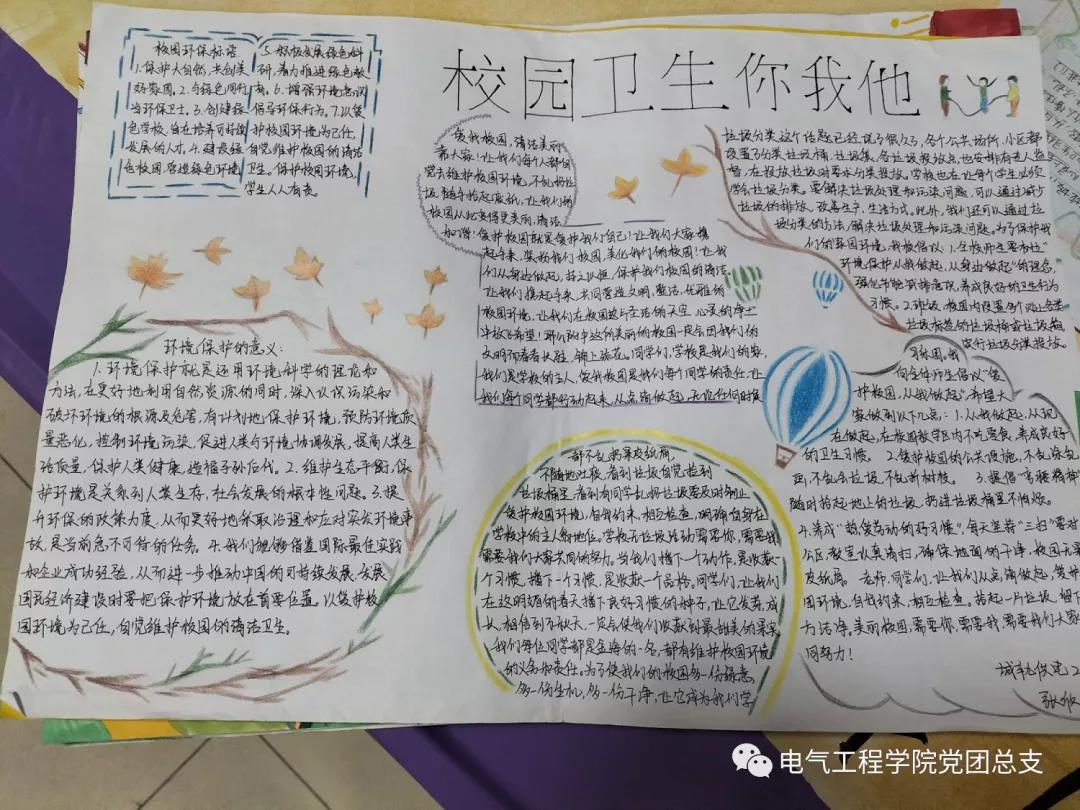 校园卫生你我他
校园环保标语
1.保护大自然,共创美
好家园。2.与绿色同行
当环保卫士。3.创建绿
色学校,旨在培养可持续
发展的人才。4.建设绿
色校园,营造绿色环境
5.积极发展绿色科
研,着力推进绿色教
育。6.增强环境意识
倡导环保行为。7.以爱
护校园环境为己任,
自觉维护校园的清洁
卫生,保护校园环境,
学生人人有责。
爱我校园,清洁美丽
靠大家!让我们每个人都自
觉去维护校园环境,不乱扔垃
圾,随手拾起废纸,让我们的
校园从此变得更美丽,清洁
加谐!爱护校园就是爱护我们自己!让我们大家携
起手来,装扮我们校园,美化我们的校园!让我
们从身边做起,持之以恒,保护我们校园的清洁
让我们携起手来,共同营造文明,整洁,优雅的
校园环境,让我们在校园这片圣洁的天空,心爱的净土
中放飞希望!那们
文明而春春长驻,锦上添花,同学们,学校是我们的家,
我们是学校的主人,爱我校园是我们每个同学的责任,让
我们每个同学都行动起来,从点滴做起,无论任何时候
都不乱扔果皮纸屑,
不随地吐痰,看到垃圾自觉捡到
垃圾桶里,看到有同学乱扔垃圾要及时制止
爱护校园环境,自我约束,相互检查,明确自身在
学校中的主人翁地位。学校无垃圾活动需要你,需要我
需要我们大家共同的努力。当我们播下一个动作,是收获一
个习惯,播下一个习惯,是收获一个品格,同学们,让我们
在这明媚的春天播下良好习惯的种子,让它发芽,成
长,相信到了秋天一定会使我们收获到最甜美的果实
我们每位同学都是
的义务和责任。为了使我们的校园多一份绿意,
多一份生机,多一份干净,让它成为我们学
垃圾分类这个话题已经说了很久了,各个公共场所,小区都
设置了分类垃圾桶,垃圾集,各垃圾投放点,也安排有专人监
督,在投放垃圾时要求分类投放。学校也在让每个学生必须
学会垃圾分类。要解决垃圾处理和污染问题,可以通过减少
垃圾的排放,改善生产,生活方式。此外,我们还可以通过垃
圾分类的方法,解决垃圾处理和污染问题。为了保护我
们的校园环境,我校倡议:1.全校师生要和让"
环境保护从我做起,从身边做起"的理念,
强化节能减排意识,养成良好的卫生行为
习惯。2.班级,校园内设置多个贴上各类
垃圾标签的垃圾桶或垃圾箱
实行垃圾分类投放
习乐园,我
向全体师生倡议"爱
护校园,从我做起"希望大
家做到以下几点:1.从我做起,从现
在做起,在校园教学区内不吃零食,养成良好
的卫生习惯。2.爱护校园的公共设施,不乱涂乱
画,不乱丢垃圾,不乱折树枝。3.提倡"弯腰精神
随时拾起地上的垃圾,扔进垃圾桶里不怕烦。
4.养成"热爱劳动的好习惯",每天坚持"三扫"要对
公区教室认真清扫,确保地面的干净,校园不果
皮纸屑。老师,同学们,让我们从点滴做起,爱护
园环境,自我约束,相互检查。拾起一片垃圾,留下
方洁净。美丽校园,需要你,需要我,需要我们大家
同努力!
环境保护的意义:
1.环境保护就是运用环境科学的理论和
方法,在更好地利用自然资源的同时,深入认识污染和
破坏环境的根源及危害,有计划地保护环境,预防环境质
量恶化,控制环境污染,促进人类与环境协调发展,提高人类生
活质量,保护人类健康,造福子孙后代。2.维护生态平衡,保
护环境是关系到人类生存,社会发展的根本性问题。3.提
升环保的政策力度,从而更好地采取治理和应对突发环境事
故,是当前急不可待的任务。4.我们能够借鉴国际最佳实践
和企业成功经验,从而进一步推动中国的可持续发展,发展
国民经济建设时要把保护环境放在首要位置。以爱护校
园环境为己任,自觉维护校园的清洁卫生。
电气工程学院党团总支